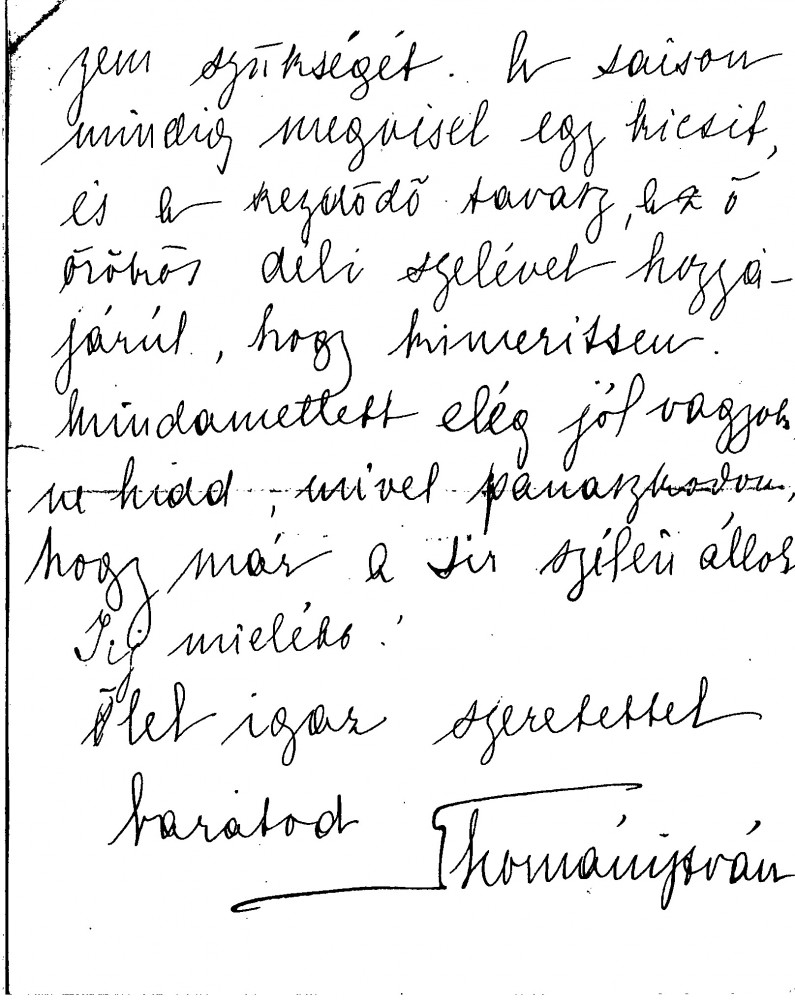 zem szükségét. A saison
mindig megvisel egy kicsit,
és a kezdődő tavasz, az ő
örökös déli szelével hozzá-
járúl, hogy kimeritsen.
Mindamellett elég jól vagyok
ne hidd, mivel panaszkodom,
hogy már a sir szélén állok
Irj mielébb!
Ölel igaz szeretettel
barátod
Thomán István